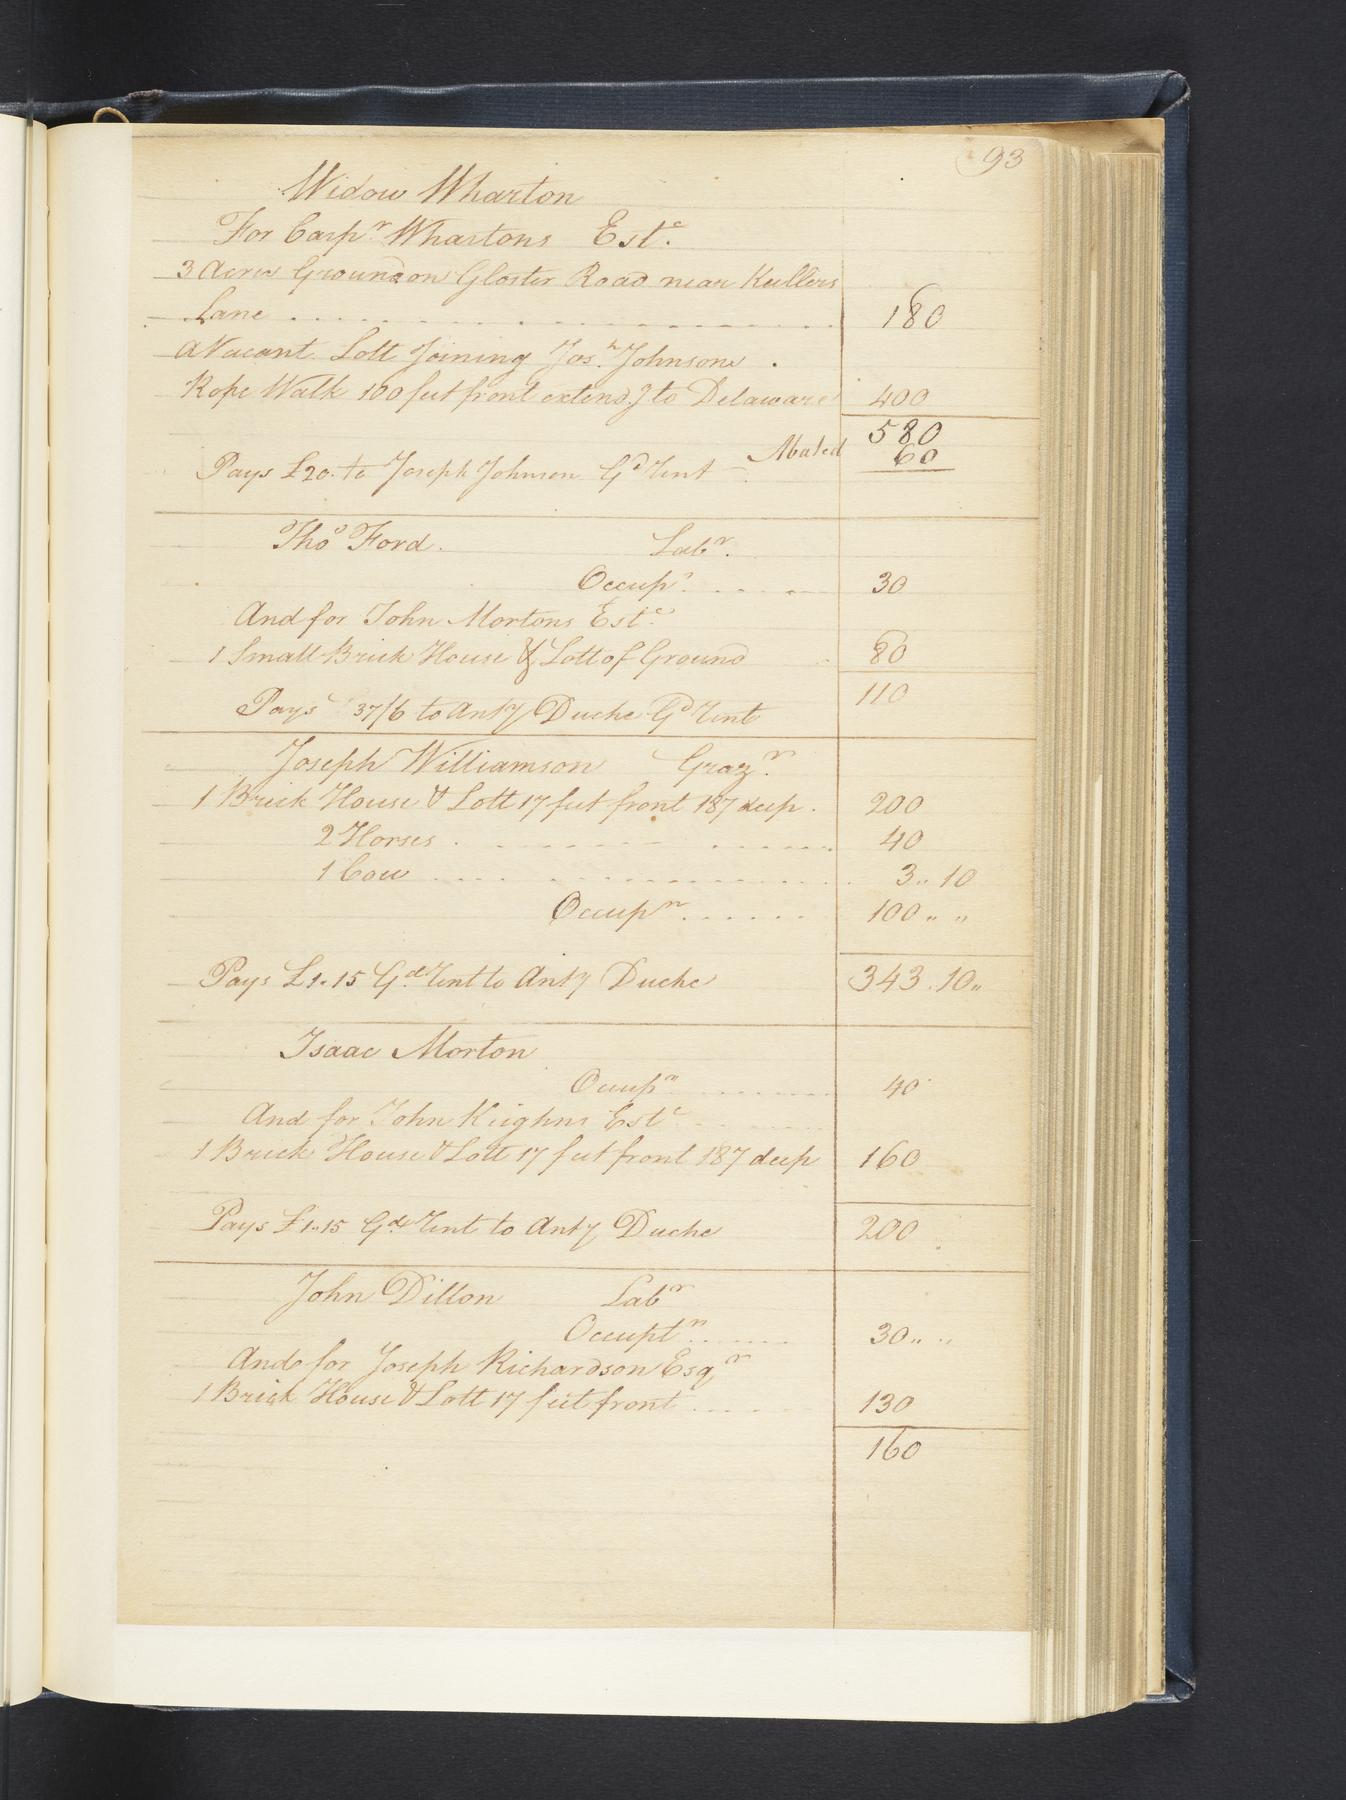 93
Widow Wharton
For Carpr. Whartons Este.
3 Acres Ground on Gloster Road near Kellers
Lane 180
A Vacant Lott Joining Josh. Johnsons
Rope Walk 100 feet front extendg to Delaware 400
580
Abated 60
Pays £20. to Joseph Johnson Gd Rent
Thos Ford. Labr.
Occupn. 30
And for John Mortons Este.
1 Small Brick House & Lott of Ground 80
110
Pays 37/6 to Anty Duche Gd Rent
Joseph Williamson Grazr.
1 Brick House & Lott 17 feet front 187 deep. 200
2 Horses 40
1 Cow 3,, 10
Occupn. 100 ,, ,,
Pays £1.15 Gd. Rent to Anty Duche 343.10,,
Isaac Morton
Occupn 40
And for John Kighns Este
1 Brick House & Lott 17 feet front 187 deep 160
Pays £1..15 Gd. Rent to Anty Duche 200
John Dillon Labr
Occuptn. 30,, ,,
And for Joseph Richardson Esqr
1 Brick House & Lott 17 feet front 130
160